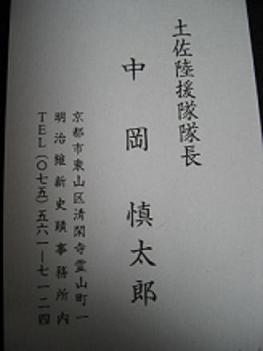 土佐陸援隊隊長
中岡慎太郎
京都市東山区清閑寺霊山町一
明治維新史蹟事務所内
TEL(〇七五)五六一ー七一二四